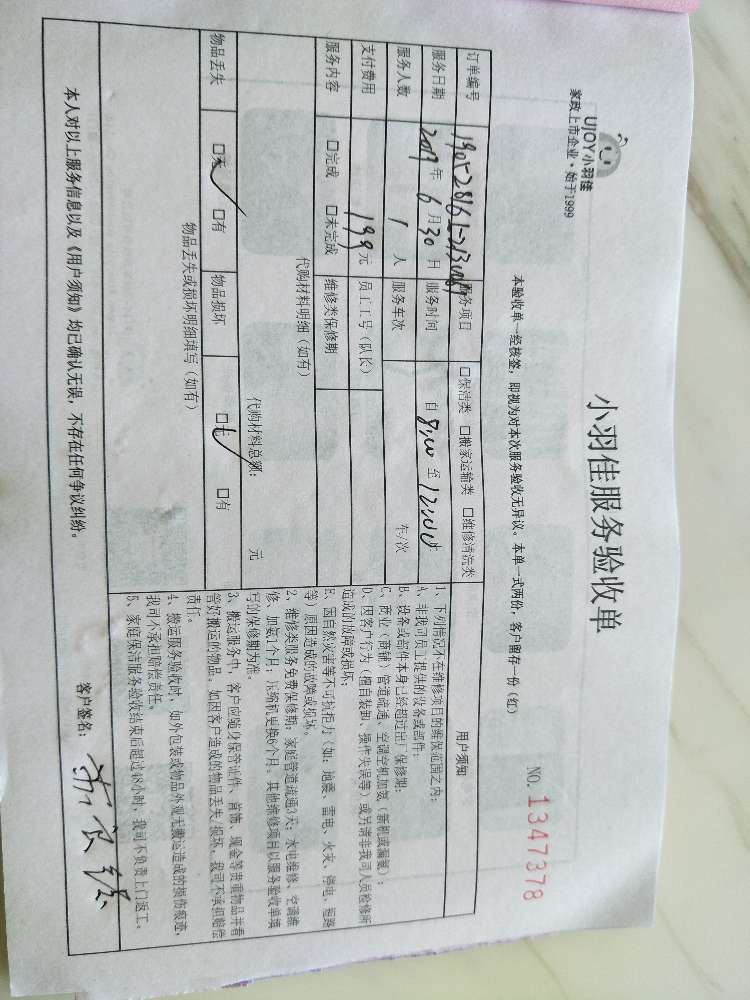 UJOY小羽佳
家政上市企业·始于1999
小羽佳服务验收单
NO. 1347378
本验收单一经核签，即视为对本次服务验收无异议。本单一式两份，客户留存一份（红）
订单编号 服务项目 □保洁类 □搬家运输类 □维修清洗类
服务日期 2019年6月30日 服务时间 自8:00至12:00
服务人数 1人 服务车次 车/次
支付费用 199元 员工工号（队长）
服务内容 □完成 □未完成 维修类保修期
代购材料明细（如有）
代购材料总额： 元
物品丢失 □无 □有 物品损坏 □无 □有
物品丢失或损坏明细填写（如有）
用户须知
1、下列情况不在维修项目的维保范围之内：
A、非我司员工提供的设备或部件；
B、设备或部件本身已经超过出厂保修期；
C、商业（商铺）管道疏通、空调空机加氨（新机或漏氨）；
D、因客户行为（擅自装卸、操作失误等）或另请非我司人员检修所
造成的故障或损坏；
E、因自然灾害等不可抗拒力（如：地震、雷电、火灾、停电、短路
等）原因造成的故障或损坏。
2、维修类服务免费保修期：家庭管道疏通3天；水电维修、空调维
修、加氨1个月；压缩机更换6个月。其他维修项目以服务验收单填
写的保修期为准。
3、搬运服务中，客户应随身保管证件、首饰、现金等贵重物品并看
管好搬运的物品。如因客户造成的物品丢失/损坏，我司不承担赔偿
责任。
4、搬运服务验收时，如外包装或物品外观无搬运造成的损伤痕迹，
我司不承担赔偿责任。
5、家庭保洁服务验收结束后超过48小时，我司不负责上门返工。
本人对以上服务信息以及《用户须知》均已确认无误，不存在任何争议纠纷。
客户签名：